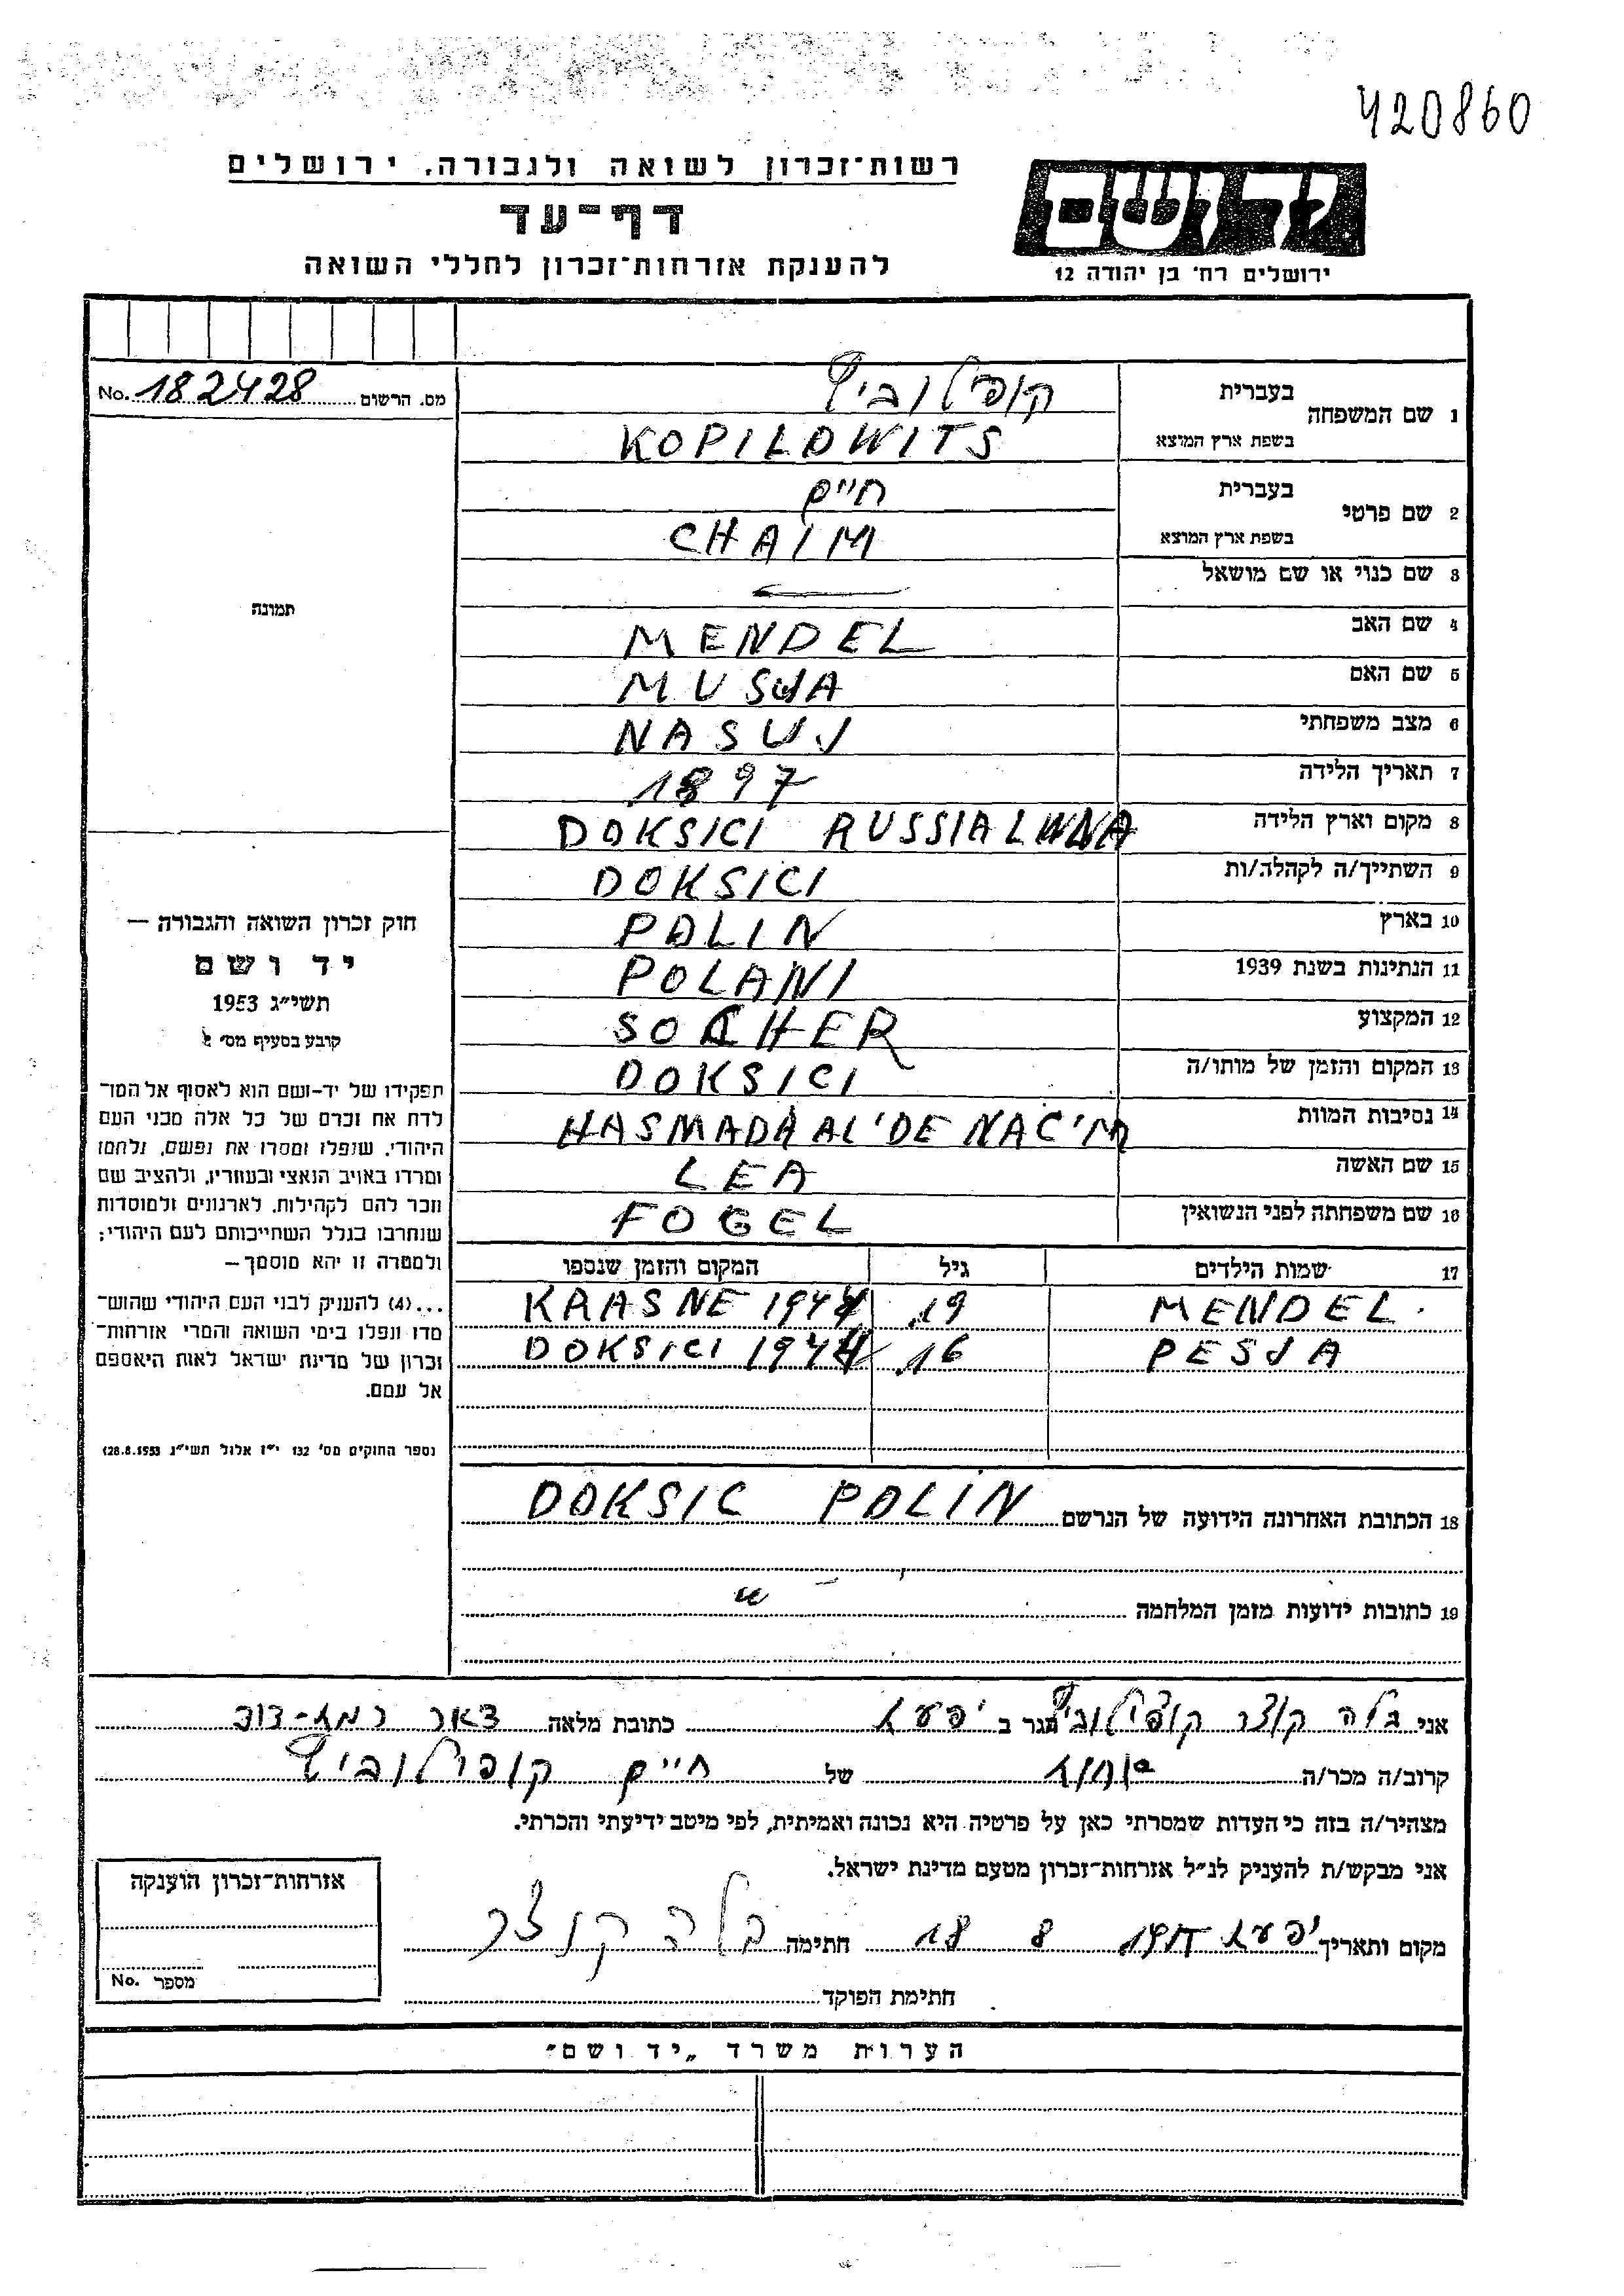 420860
רשות־זכרון לשואה ולגבורה. ירושלים
דף־עד
להענקת אזרחות־זכרון לחללי השואה
יד ושם
ירושלים רח׳ בן יהודה 12
מס. הרשום 182428 No.
1 שם המשפחה
בעברית קופילוביץ
בשפת ארץ המוצא KOPILOWITS
2 שם פרטי
בעברית חיים
בשפת ארץ המוצא CHAIM
3 שם כנוי או שם מושאל —
4 שם האב MENDEL
5 שם האם MUSJA
6 מצב משפחתי NASUJ
7 תאריך הלידה 1897
8 מקום וארץ הלידה DOKSICI RUSSIA
9 השתייך/ה לקהלה/ות DOKSICI
10 בארץ POLIN
11 הנתינות בשנת 1939 POLANI
12 המקצוע SOCHER
13 המקום והזמן של מותו/ה DOKSICI
14 נסיבות המוות HASMADA AL'DE NAC'M
15 שם האשה LEA
16 שם משפחתה לפני הנשואין FOGEL
17 שמות הילדים גיל המקום והזמן שנספו
MENDEL 19 KRASNE 194
PESJA 16 DOKSICI 194
18 הכתובת האחרונה הידועה של הנרשם DOKSIC POLIN
19 כתובות ידועות מזמן המלחמה
תמונה
חוק זכרון השואה והגבורה —
יד ושם
תשי״ג 1953
קובע בסעיף מס׳ 2
תפקידו של יד-ושם הוא לאסוף אל המו־
לדת את זכרם של כל אלה מבני העם
היהודי, שנפלו ומסרו את נפשם, נלחמו
ומרדו באויב הנאצי ובעוזריו, ולהציב שם
וזכר להם לקהילות, לארגונים ולמוסדות
שנחרבו בגלל השתייכותם לעם היהודי;
ולמטרה זו יהא מוסמך —
...(4) להעניק לבני העם היהודי שהוש־
מדו ונפלו בימי השואה והמרי אזרחות־
זכרון של מדינת ישראל לאות היאספם
אל עמם.
(ספר החוקים מס׳ 132 י״ז אלול תשי״ג 28.8.1953)
אני בלה קוצר קופילוביץ הגר ב יפעת כתובת מלאה דאר רמת-דוד
קרוב/ה מכר/ה של חיים קופילוביץ
מצהיר/ה בזה כי העדות שמסרתי כאן על פרטיה היא נכונה ואמיתית, לפי מיטב ידיעתי והכרתי.
אני מבקש/ת להעניק לנ״ל אזרחות־זכרון מטעם מדינת ישראל.
מקום ותאריך יפעת 18 8 חתימה בלה קוצר
חתימת הפוקד
אזרחות־זכרון הוענקה
מספר No.
הערות משרד „יד ושם״